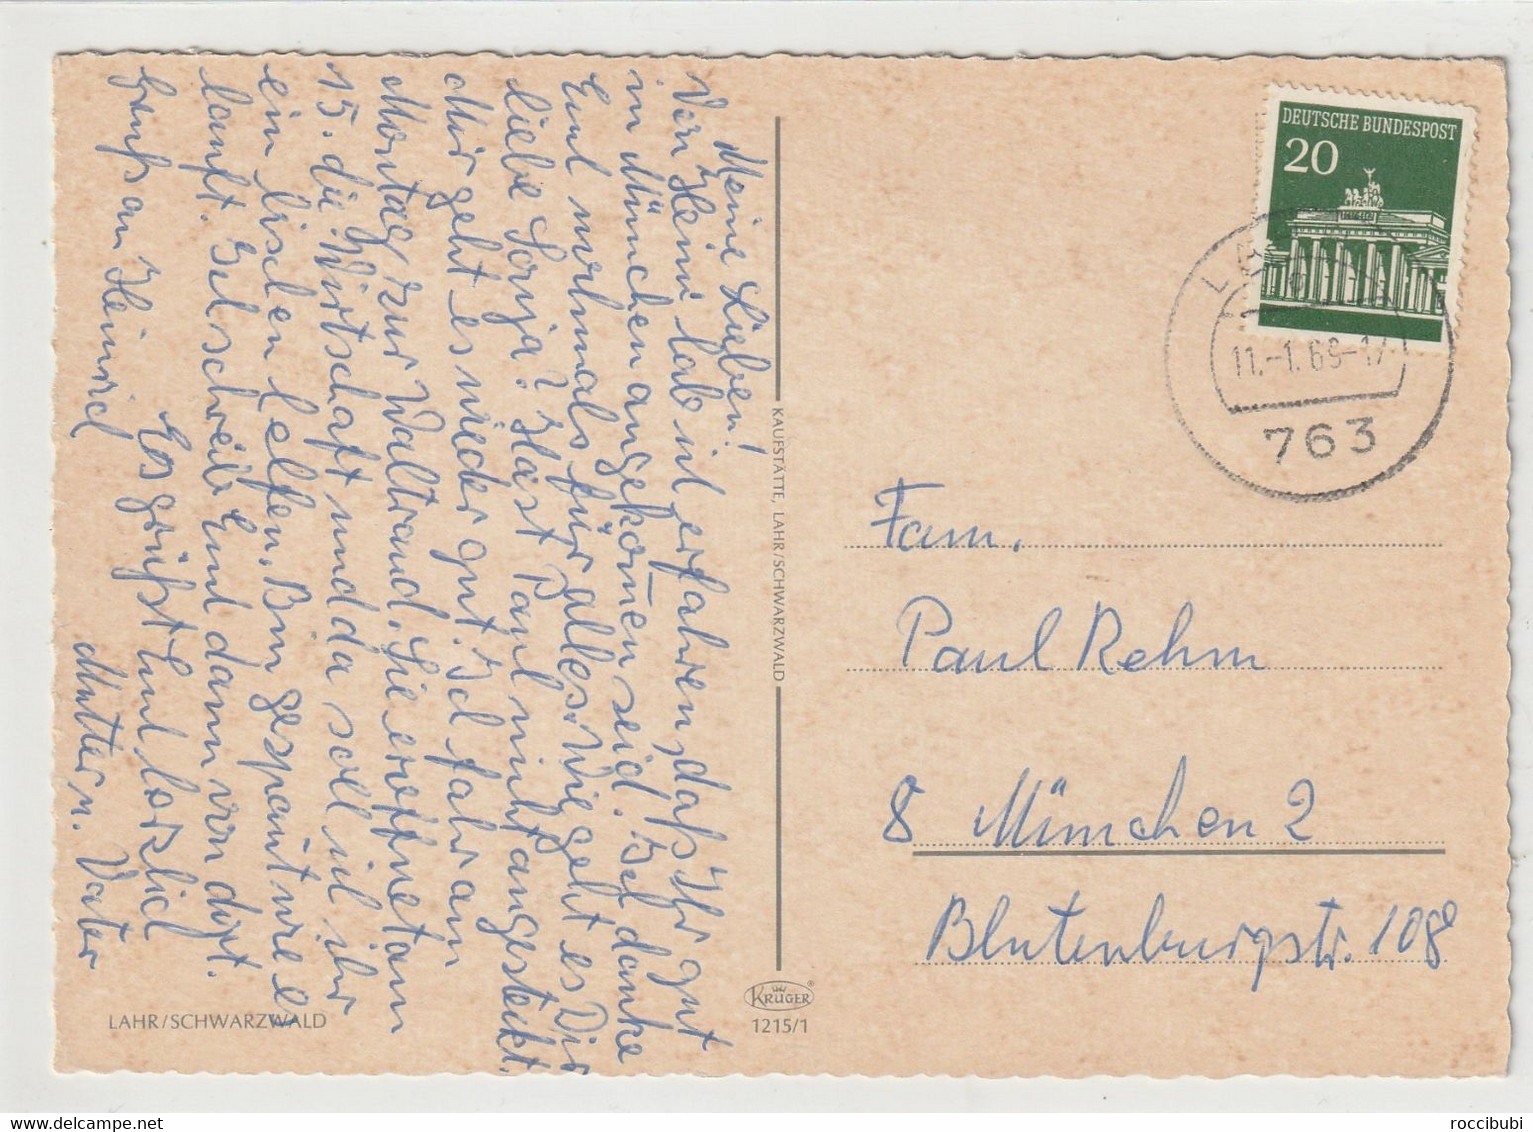 Meine Lieben!
Von Heini hab ich erfahren, daß Ihr gut
in München angekomen seid. Ich danke
Euch mehrmals für alles. Wie geht es Dir
liebe Sonja? Hast Paul nicht angesteckt.
Mir geht es wieder gut. Ich fahr am
Montag zur Waltraud. Sie eröffnet am
15. die Wirtschaft und da soll ich ihr
ein bischen helfen. Bin gespant wie es
lauft. Ich schreib Euch dann von dort.
Es grüßt Euch herzlich
Gruß an Heinrich
Mutter u. Vater
LAHR/SCHWARZWALD
KAUFSTÄTTE, LAHR/SCHWARZWALD
KRÜGER
1215/1
DEUTSCHE BUNDESPOST
20
11.-1.69-17
763
Fam.
Paul Rehm
8 München 2
Blutenburgstr. 108
roccibubi
www.delcampe.net